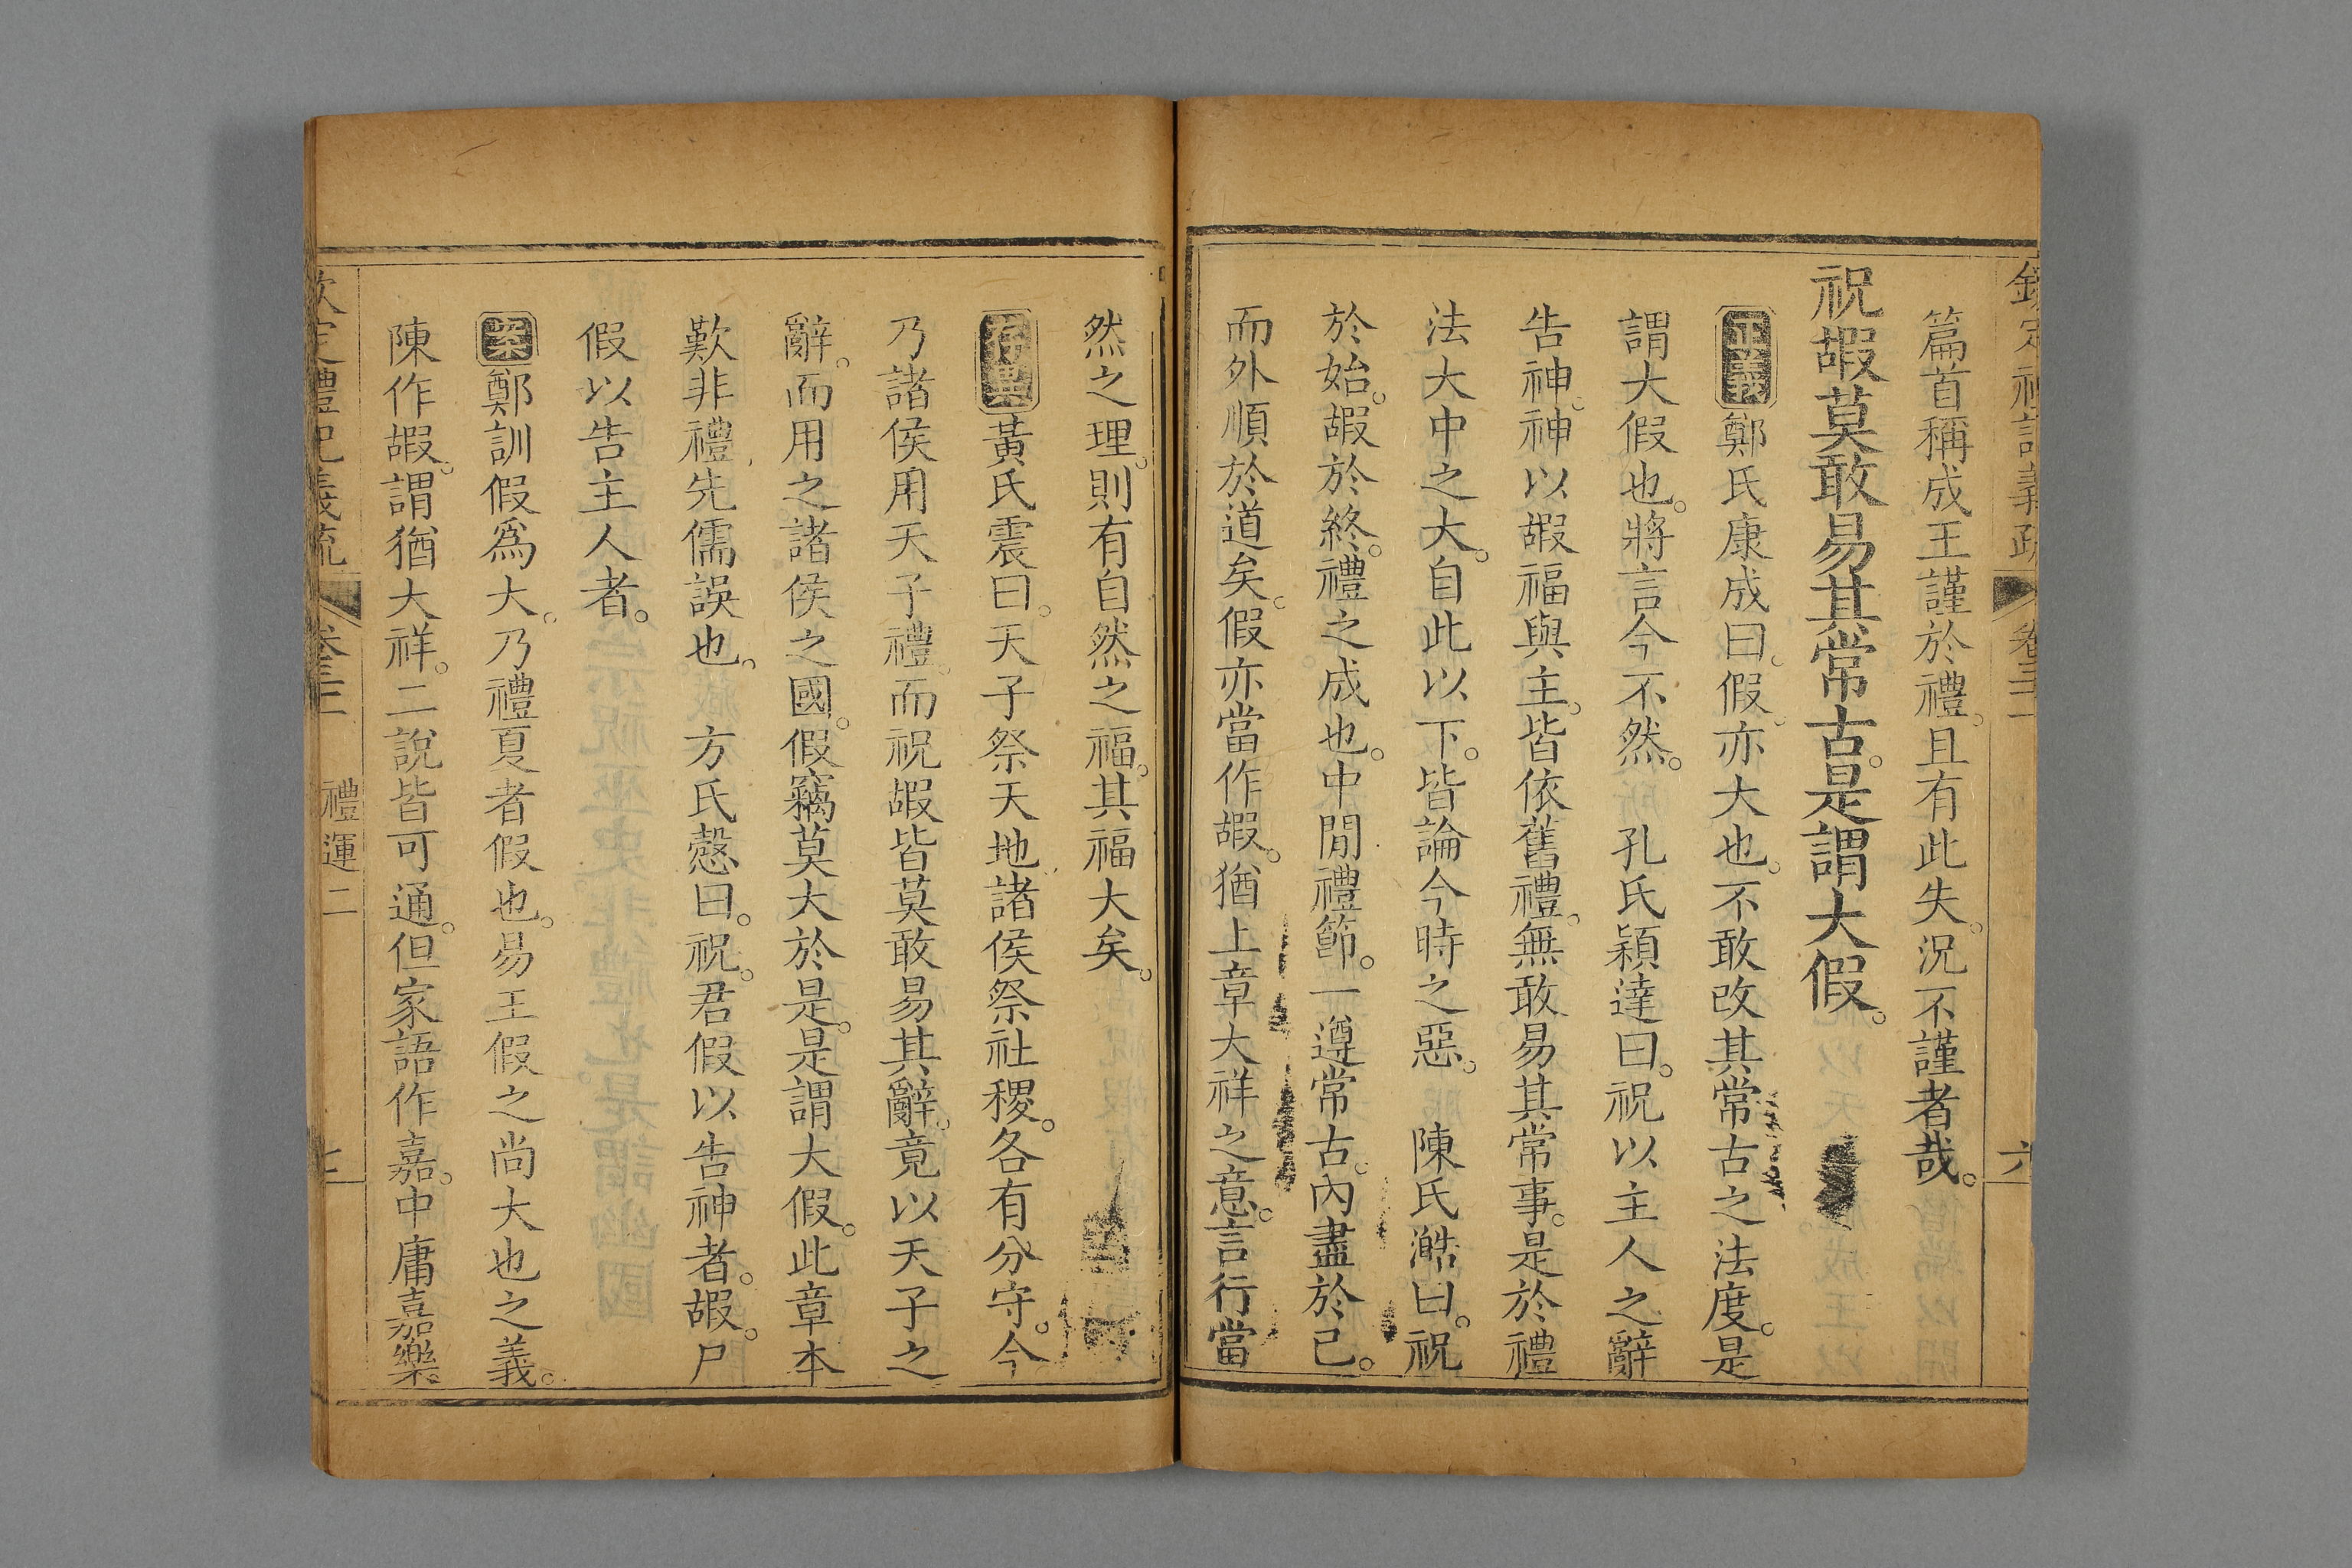 欽定禮記義疏 卷三十一 六
篇首稱成王謹於禮。且有此失。況不謹者哉。
祝嘏莫敢易其常古。是謂大假。
正義鄭氏康成曰。假亦大也。不敢改其常古之法度。是
謂大假也。將言今不然。 孔氏穎達曰。祝以主人之辭
告神。神以嘏福與主。皆依舊禮。無敢易其常事。是於禮
法大中之大。自此以下。皆論今時之惡。 陳氏澔曰。祝
於始。嘏於終。禮之成也。中閒禮節。一遵常古。內盡於己。
而外順於道矣。假亦當作嘏。猶上章大祥之意。言行當
然之理。則有自然之福。其福大矣。
存異黃氏震曰。天子祭天地。諸侯祭社稷。各有分守。今
乃諸侯用天子禮。而祝嘏皆莫敢易其辭。竟以天子之
辭。而用之諸侯之國。假竊莫大於是。是謂大假。此章本
歎非禮、先儒誤也。 方氏慤曰。祝。君假以告神者。嘏。尸
假以告主人者。
案鄭訓假爲大。乃禮夏者假也。易王假之尚大也之義。
陳作嘏。謂猶大祥。二說皆可通。但家語作嘉。中庸嘉樂。
欽定禮記義疏 卷三十一 禮運二 七